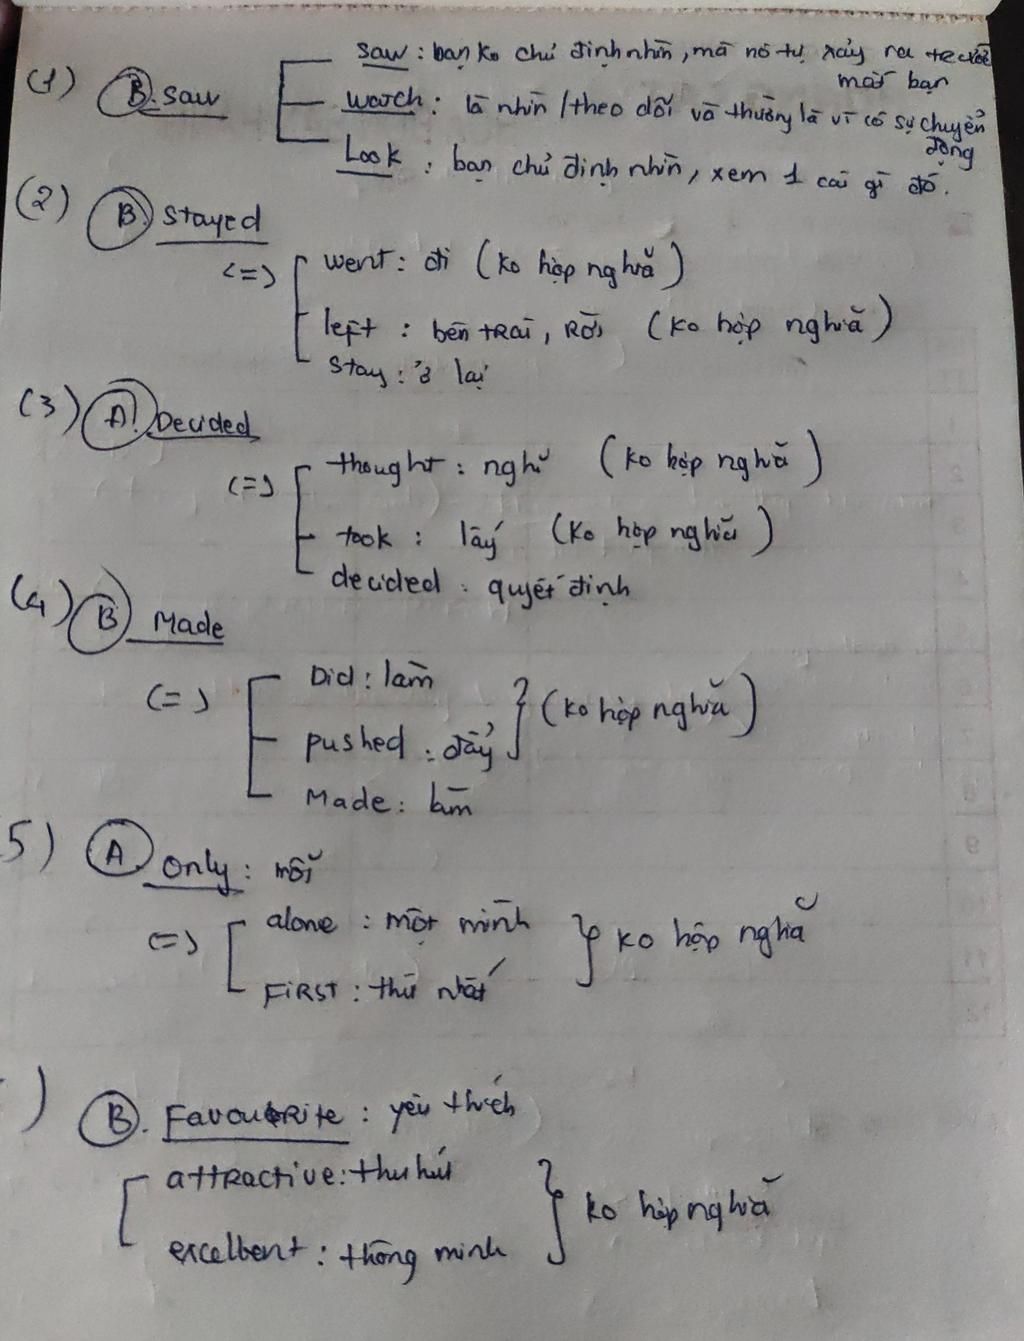 (1) B. saw
saw : bạn ko chủ định nhìn, mà nó tự xảy ra trước
mắt bạn
watch : là nhìn / theo dõi và thường là vì có sự chuyển
động
Look : bạn chủ định nhìn, xem 1 cái gì đó.
(2) B. stayed
<=> went : đi (ko hợp nghĩa)
left : bên trái, rời (ko hợp nghĩa)
stay : ở lại
(3) A. Decided
<=> thought : nghĩ (ko hợp nghĩa)
took : lấy (ko hợp nghĩa)
decided : quyết định
(4) B Made
<=> Did : làm
pushed : đẩy
(ko hợp nghĩa)
Made : làm
5) A only : mỗi
<=> alone : một mình
First : thứ nhất
ko hợp nghĩa
) B. Favourite : yêu thích
attractive : thu hút
excelbent : thông minh
ko hợp nghĩa